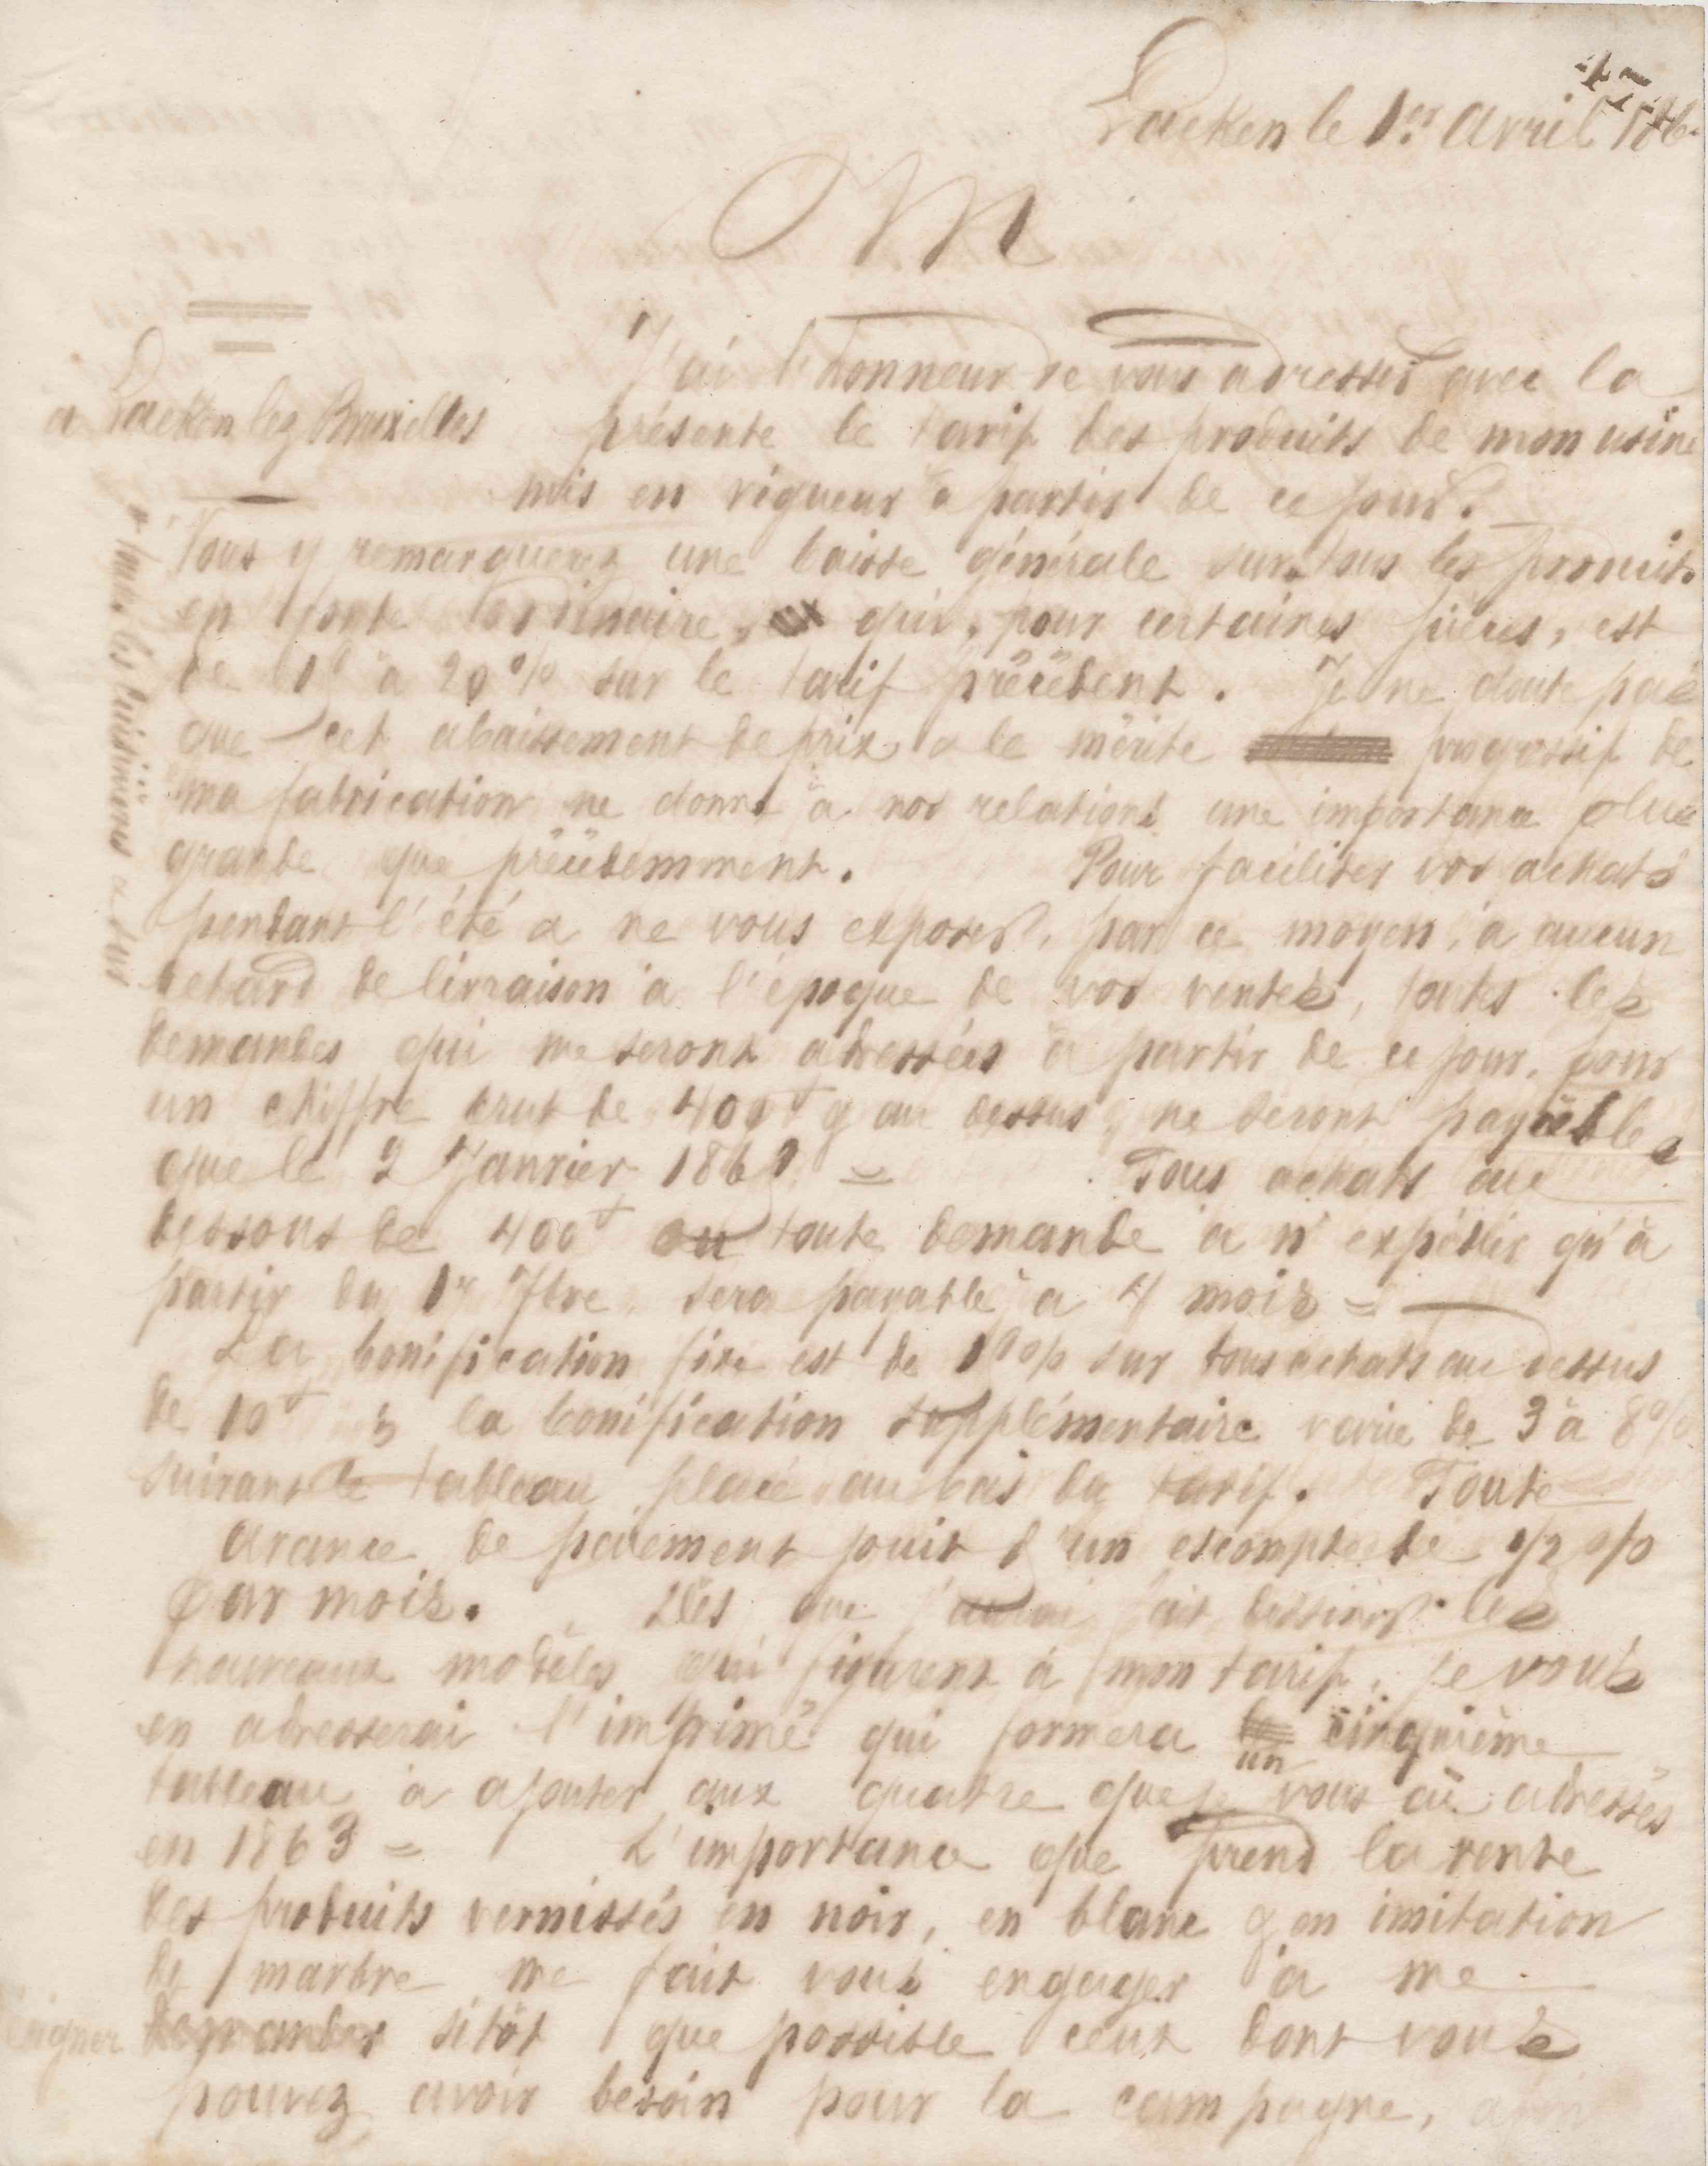 474
Laeken le 1er Avril 186
M
J'ai l'honneur de vous adresser avec la
à Laeken lez Bruxelles
présente le tarif des produits de mon usine
mis en vigueur à partir de ce jour.
Vous y remarquerez une baisse générale sur tous les produits
en fonte ordinaire, qui, pour certaines pièces, est
de à 20 % sur le tarif précédent. Je ne doute pas
que cet abaissement de prix & le mérite progressif de
ma fabrication ne donne à nos relations une importance plus
grande que précédemment. Pour faciliter vos achats
pendant l'été & ne vous exposer, par ce moyen, à aucun
retard de livraison à l'époque de vos ventes, toutes les
demandes qui me seront adressées à partir de ce jour, pour
un chiffre brut de 400f & au dessus, ne seront payables
que le 2 Janvier 186 = Tous achats au
dessous de 400f ou toute demande à n'expédier qu'à
partir du 1er 7bre sera payable à 4 mois =
La bonification fixe est de 10 o/o sur tous achats au dessus
de 10f & la bonification supplémentaire varie de 3 à 8 %
suivant le tableau placé au bas du tarif. Toute
avance de paiement jouit d'un escompte de 1/2 o/o
par mois. Dès que j'aurai fait dessiner les
nouveaux modèles qui figurent à mon tarif, je vous
en adresserai l'imprimé qui formera un cinquième
tableau à ajouter aux quatre que je vous ai adressés
en 1863 = L'importance que prend la vente
des produits vernissés en noir, en blanc & en imitation
de marbre me fait vous engager à me
demander sitôt que possible ceux dont vous
pouvez avoir besoin pour la campagne, afin
& toutes les Cuisinières & sur